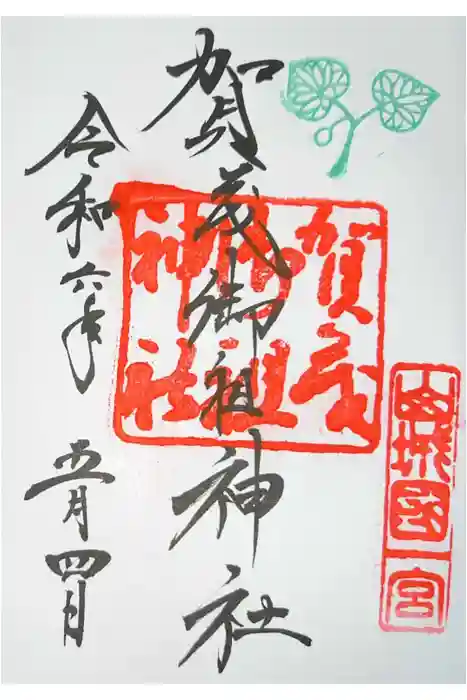 山城國一宮
賀茂御祖神社
賀茂御祖神社
令和六年 五月四日